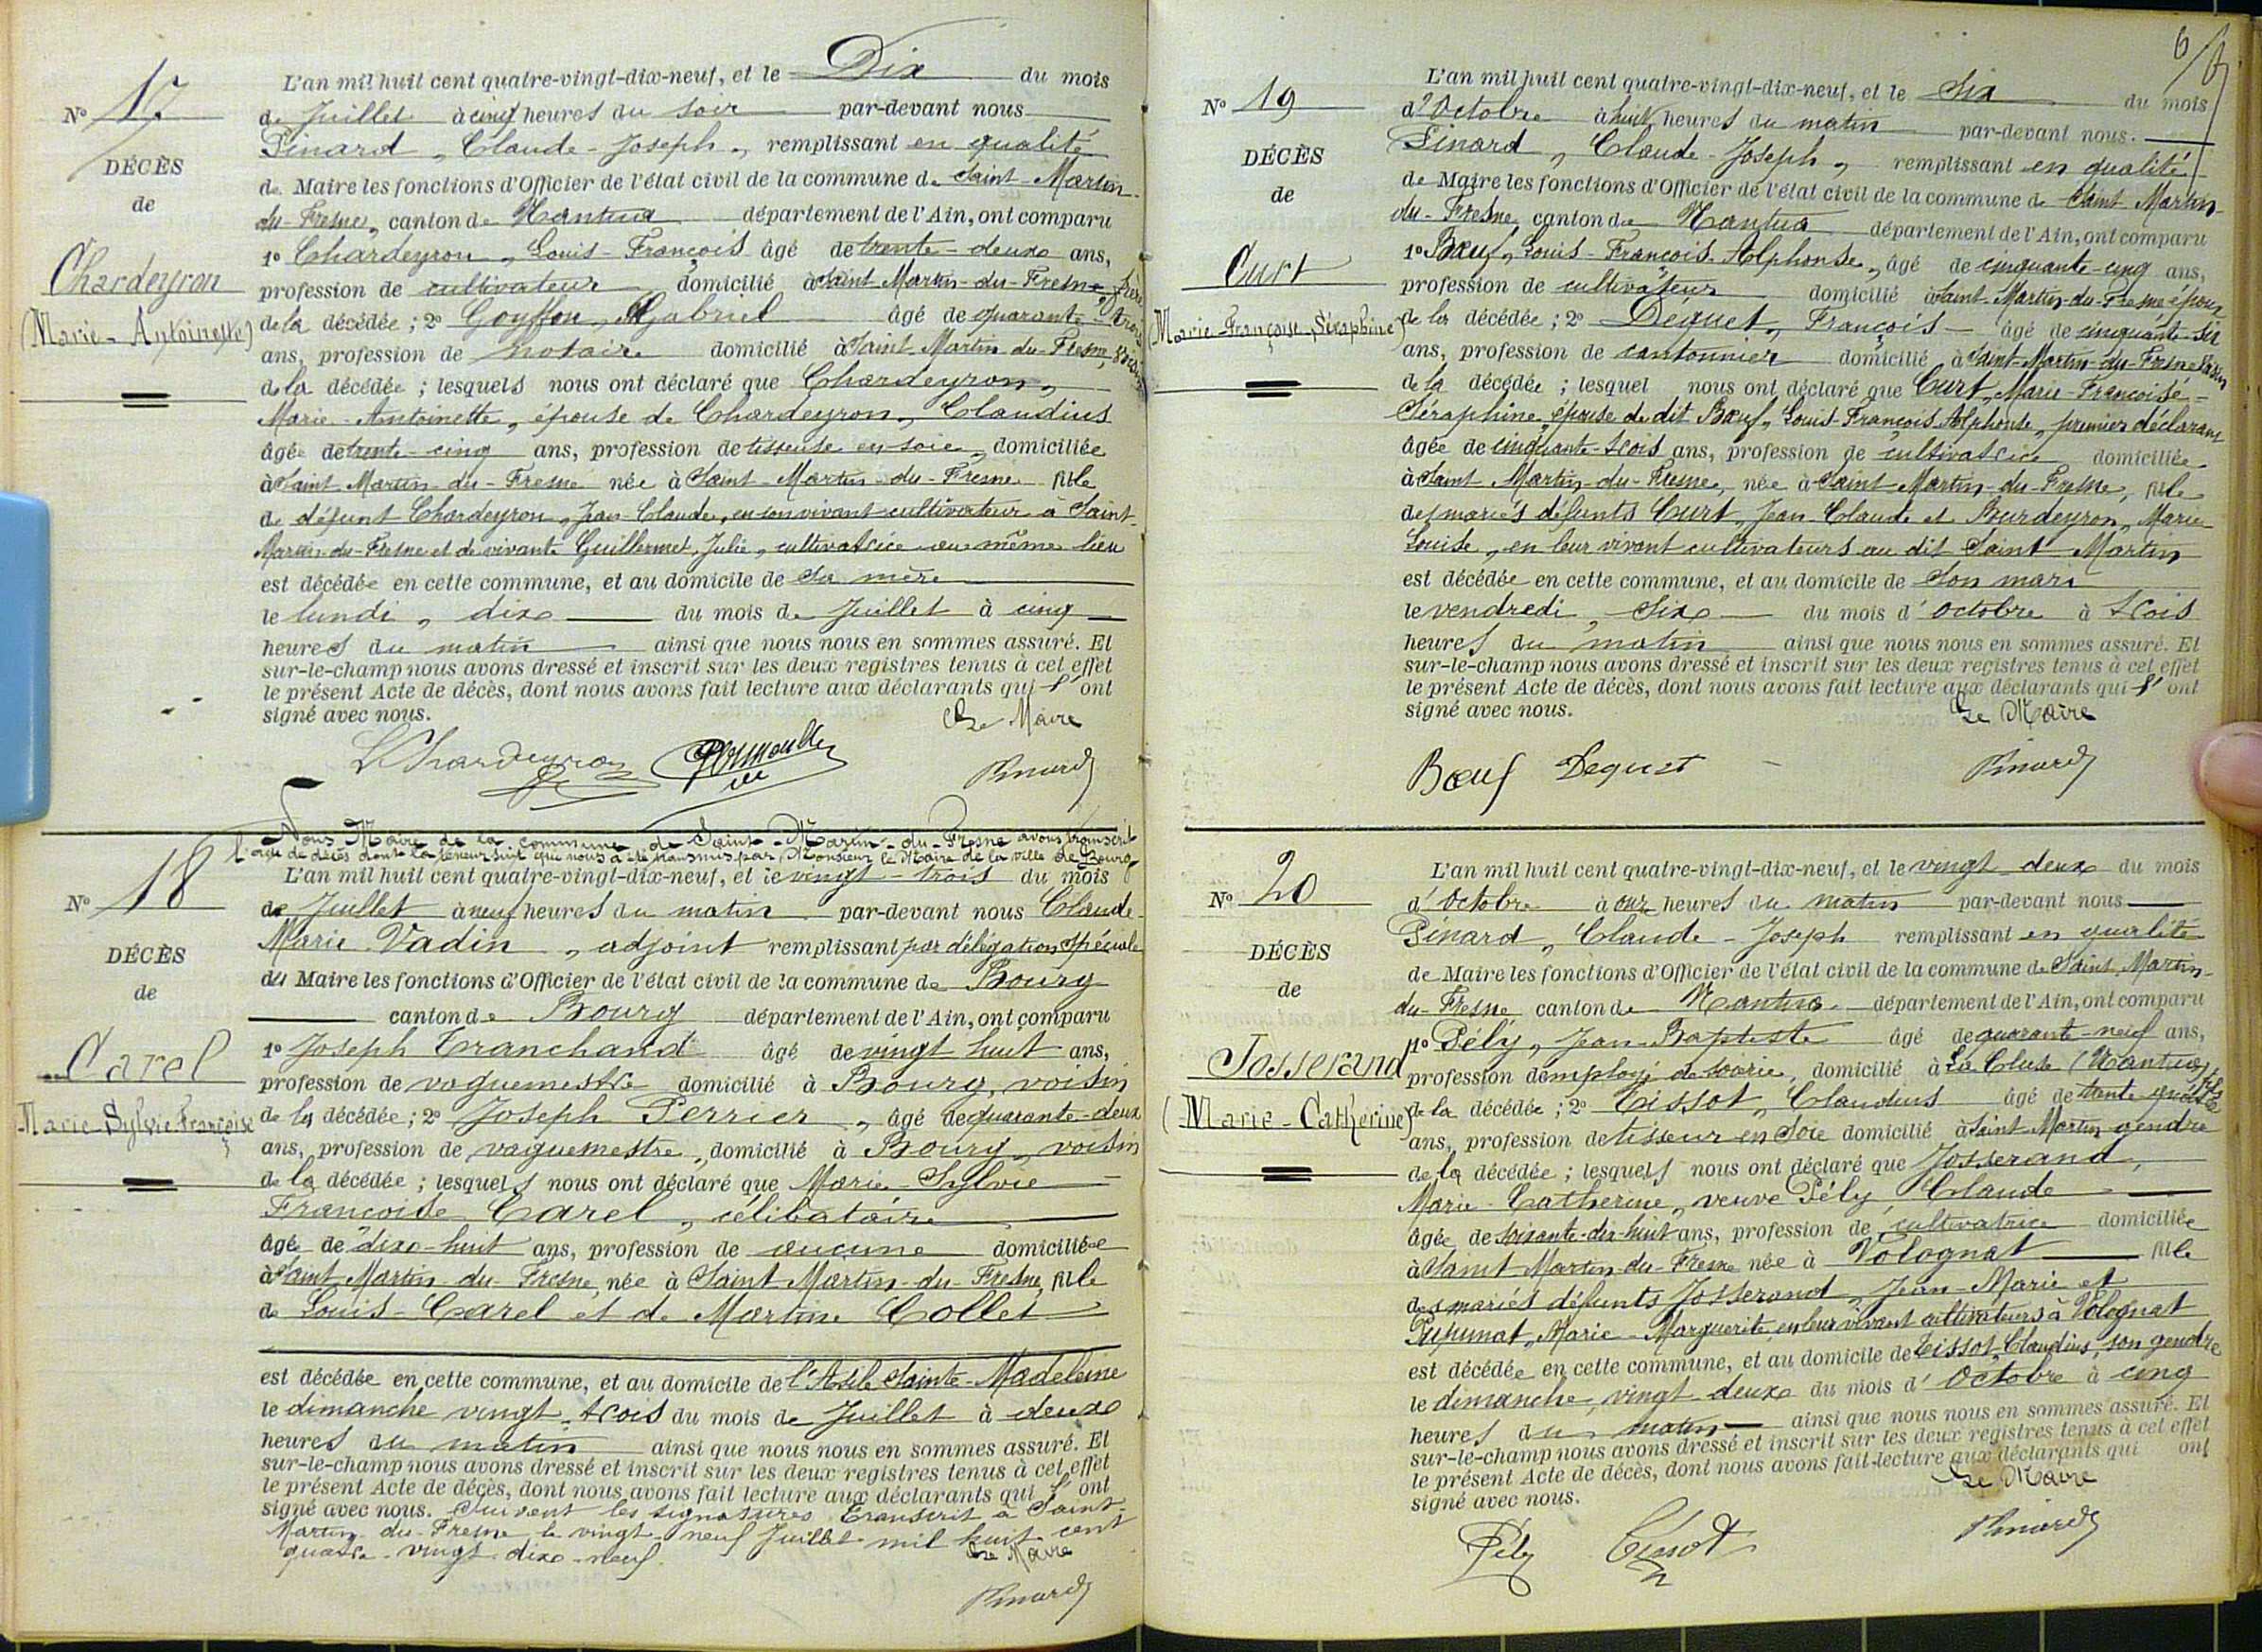 N° 17
DÉCÈS
de
Chardeyron
(Marie-Antoinette)
L'an mil huit cent quatre-vingt-dix-neuf, et le Dix du mois
de Juillet à cinq heures du soir par-devant nous
Pinard, Claude-Joseph, remplissant en qualité
de Maire les fonctions d'Officier de l'état civil de la commune de Saint-Martin-
du-Fresne, canton de Nantua département de l'Ain, ont comparu
1° Chardeyron, Louis-François âgé de trente-deux ans,
profession de cultivateur domicilié à Saint-Martin-du-Fresne, frère
de la décédée ; 2° Gouffon, Gabriel âgé de quarante-trois
ans, profession de notaire domicilié à Saint Martin du-Fresne, voisin
de la décédée ; lesquels nous ont déclaré que Chardeyron,
Marie-Antoinette, épouse de Chardeyron, Claudius
âgée de trente-cinq ans, profession de tisseuse en soie, domiciliée
à Saint Martin-du-Fresne née à Saint-Martin-du-Fresne fille
de défunt Chardeyron, Jean-Claude, en son vivant cultivateur à Saint-
Martin-du-Fresne et de vivante Guillermet, Julie, cultivatrice au même lieu
est décédée en cette commune, et au domicile de sa mère
le lundi, dix du mois de Juillet à cinq
heures du matin ainsi que nous nous en sommes assuré. Et
sur-le-champ nous avons dressé et inscrit sur les deux registres tenus à cet effet
le présent Acte de décès, dont nous avons fait lecture aux déclarants qui l'ont
signé avec nous.
Le Maire
L Chardeyron
Pinard
Nous Maire de la commune de Saint-Martin-du-Fresne avons transcrit
l'acte de décès dont la teneur suit qui nous a été transmis par Monsieur le Maire de la ville de Bourg
N° 18
DÉCÈS
de
Carel
Marie-Sylvie Françoise
L'an mil huit cent quatre-vingt-dix-neuf, et le vingt-trois du mois
de Juillet à neuf heures du matin par-devant nous Claude-
Marie Vadin, adjoint remplissant par délégation spéciale
du Maire les fonctions d'Officier de l'état civil de la commune de Bourg
canton de Bourg département de l'Ain, ont comparu
1° Joseph Tranchand âgé de vingt huit ans,
profession de vaguemestre domicilié à Bourg, voisin
de la décédée ; 2° Joseph Perrier, âgé de quarante-deux
ans, profession de vaguemestre, domicilié à Bourg, voisin
de la décédée ; lesquels nous ont déclaré que Marie-Sylvie
Françoise Carel, célibataire
âgé de dix-huit ans, profession de aucune domiciliée
à Saint Martin-du-Fresne, née à Saint Martin-du-Fresne, fille
de Louis-Carel et de Martine Collet
est décédée en cette commune, et au domicile de l'Asile Sainte-Madeleine
le dimanche vingt-trois du mois de Juillet à deux
heures du matin ainsi que nous nous en sommes assuré. Et
sur-le-champ nous avons dressé et inscrit sur les deux registres tenus à cet effet
le présent Acte de décès, dont nous avons fait lecture aux déclarants qui l'ont
signé avec nous. Suivent les signatures. Transcrit à Saint-
Martin-du-Fresne le vingt-neuf Juillet mil huit cent
quatre-vingt-dix-neuf.
Le Maire
Pinard
6
N° 19
DÉCÈS
de
Curt
(Marie-Françoise-Séraphine)
L'an mil huit cent quatre-vingt-dix-neuf, et le Six du mois
d'Octobre à huit heures du matin par-devant nous.
Pinard, Claude-Joseph, remplissant en qualité
de Maire les fonctions d'Officier de l'état civil de la commune de Saint Martin-
du-Fresne canton de Nantua département de l'Ain, ont comparu
1° Bœuf, Louis-François-Alphonse, âgé de cinquante-cinq ans,
profession de cultivateur domicilié à Saint-Martin-du-Fresne époux
de la décédée ; 2° Déquet, François âgé de cinquante-six
ans, profession de cantonnier domicilié à Saint-Martin-du-Fresne voisin
de la décédée ; lesquel nous ont déclaré que Curt, Marie-Françoise-
Séraphine, épouse de dit Bœuf, Louis-François Alphonse, premier déclarant
âgée de cinquante-trois ans, profession de cultivatrice domiciliée
à Saint Martin-du-Fresne, née à Saint-Martin-du-Fresne, fille
des mariés défunts Curt, Jean-Claude et Burdeyron, Marie
Louise, en leur vivant cultivateurs au dit Saint Martin
est décédée en cette commune, et au domicile de son mari
le vendredi, six du mois d'octobre à trois
heures du matin ainsi que nous nous en sommes assuré. Et
sur-le-champ nous avons dressé et inscrit sur les deux registres tenus à cet effet
le présent Acte de décès, dont nous avons fait lecture aux déclarants qui l'ont
signé avec nous.
Le Maire
Bœuf Dequet
Pinard
N° 20
DÉCÈS
de
Josserand
(Marie-Catherine)
L'an mil huit cent quatre-vingt-dix-neuf, et le vingt deux du mois
d'Octobre à onze heures du matin par-devant nous
Pinard, Claude-Joseph remplissant en qualité
de Maire les fonctions d'Officier de l'état civil de la commune de Saint Martin-
du-Fresne canton de Nantua département de l'Ain, ont comparu
1° Pély, Jean-Baptiste âgé de quarante-neuf ans,
profession d'employé de soierie, domicilié à La Cluse (Nantua) fils
de la décédée ; 2° Tissot, Claudius âgé de trente quatre
ans, profession de tisseur en soie domicilié à Saint Martin gendre
de la décédée ; lesquels nous ont déclaré que Josserand,
Marie-Catherine, veuve Pély Claude
âgée de soixante-dix-huit ans, profession de cultivatrice domiciliée
à Saint Martin-du-Fresne née à Volognat fille
des mariés défunts Josserand, Jean-Marie et
Pupunat, Marie-Marguerite, en leur vivant cultivateurs à Volognat
est décédée en cette commune, et au domicile de Tissot, Claudius, son gendre
le dimanche, vingt deux du mois d'Octobre à cinq
heures du matin ainsi que nous nous en sommes assuré. Et
sur-le-champ nous avons dressé et inscrit sur les deux registres tenus à cet effet
le présent Acte de décès, dont nous avons fait lecture aux déclarants qui ont
signé avec nous.
Le Maire
Pély Tissot
Pinard